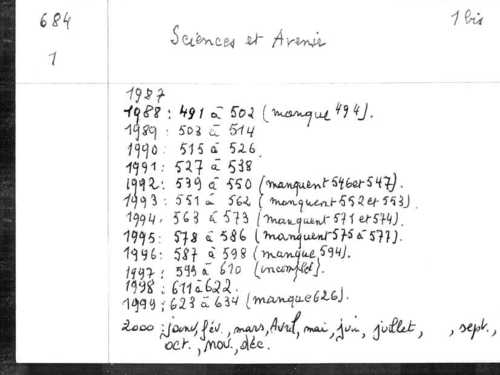 684
1 bis
Sciences et Avenir
1
1987
1988 : 491 à 502 (manque 494).
1989 : 503 à 514
1990 : 515 à 526.
1991 : 527 à 538
1992 : 539 à 550 (manquent 546 et 547).
1993 : 551 à 562 (manquent 552 et 553).
1994 : 563 à 573 (manquent 571 et 574).
1995 : 578 à 586 (manquent 575 à 577).
1996 : 587 à 598 (manque 594).
1997 : 599 à 610 (incomplet).
1998 : 611 à 622.
1999 : 623 à 634 (manque 626).
2000 : janv, fév., mars, Avril, mai, juin, juillet, , sept.,
oct., nov., déc.